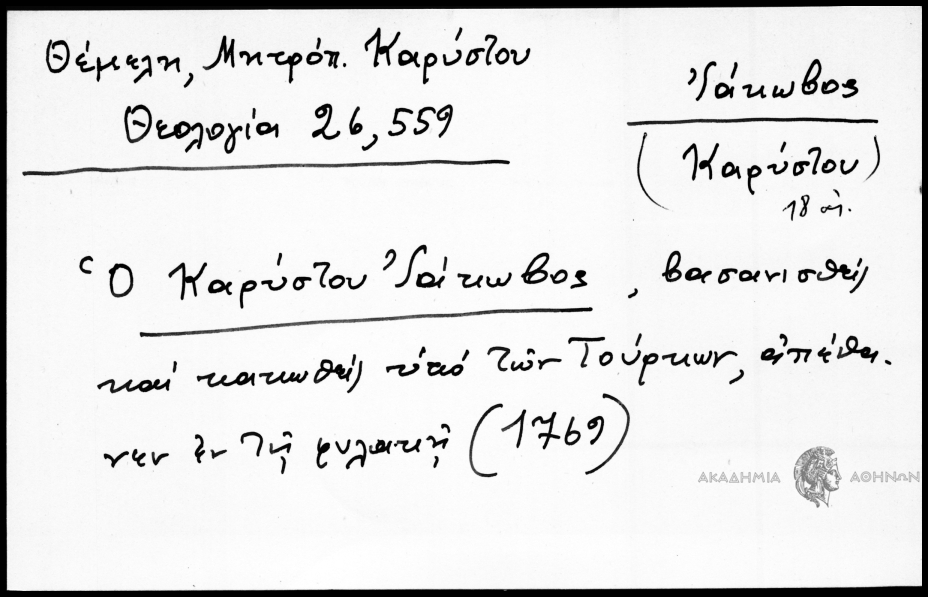 Θέμελη, Μητρόπ. Καρύστου
Θεολογία 26, 559
Ἰάκωβος
(Καρύστου)
18 αἰ.
Ὁ Καρύστου Ἰάκωβος, βασανισθείς
καί κακωθείς ὑπό τῶν Τούρκων, ἀπέθα-
νεν ἐν τῇ φυλακῇ (1769)
ΑΚΑΔΗΜΙΑ ΑΘΗΝΩΝ